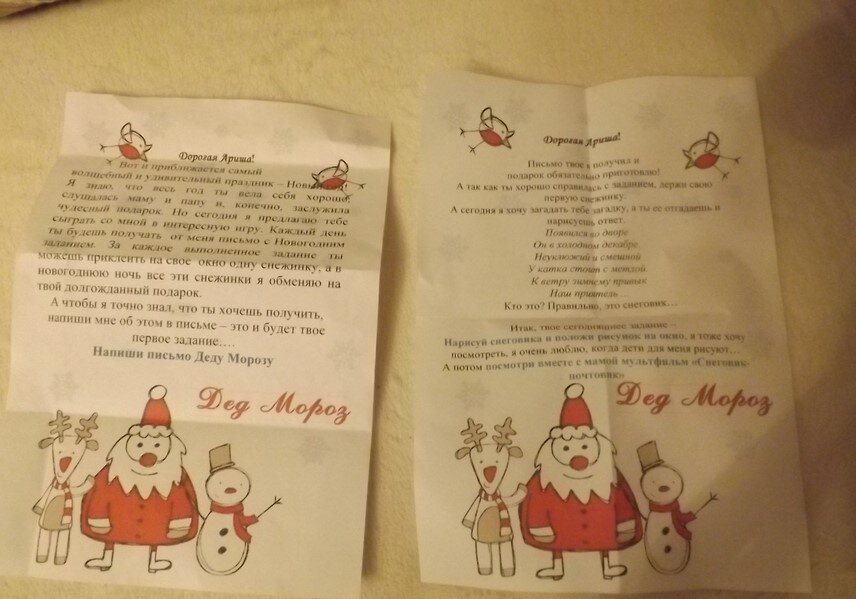 Дорогая Ариша!
Вот и приближается самый
волшебный и удивительный праздник – Новый год!
Я знаю, что весь год ты вела себя хорошо,
слушалась маму и папу и, конечно, заслужила
чудесный подарок. Но сегодня я предлагаю тебе
сыграть со мной в интересную игру. Каждый день
ты будешь получать от меня письмо с Новогодним
заданием. За каждое выполненное задание ты
можешь приклеить на свое окно одну снежинку, а в
новогоднюю ночь все эти снежинки я обменяю на
твой долгожданный подарок.
А чтобы я точно знал, что ты хочешь получить,
напиши мне об этом в письме – это и будет твое
первое задание….
Напиши письмо Деду Морозу
Дед Мороз
Дорогая Ариша!
Письмо твое я получил и
подарок обязательно приготовлю!
А так как ты хорошо справилась с заданием, держи свою
первую снежинку.
А сегодня я хочу загадать тебе загадку, а ты ее отгадаешь и
нарисуешь ответ.
Появился во дворе
Он в холодном декабре
Неуклюжий и смешной
У катка стоит с метлой
К ветру зимнему привык
Наш приятель ...
Кто это? Правильно, это снеговик…
Итак, твое сегодняшнее задание –
Нарисуй снеговика и положи рисунок на окно, я тоже хочу
посмотреть, я очень люблю, когда дети для меня рисуют…
А потом посмотри вместе с мамой мультфильм «Снеговик-
почтовик»
Дед Мороз